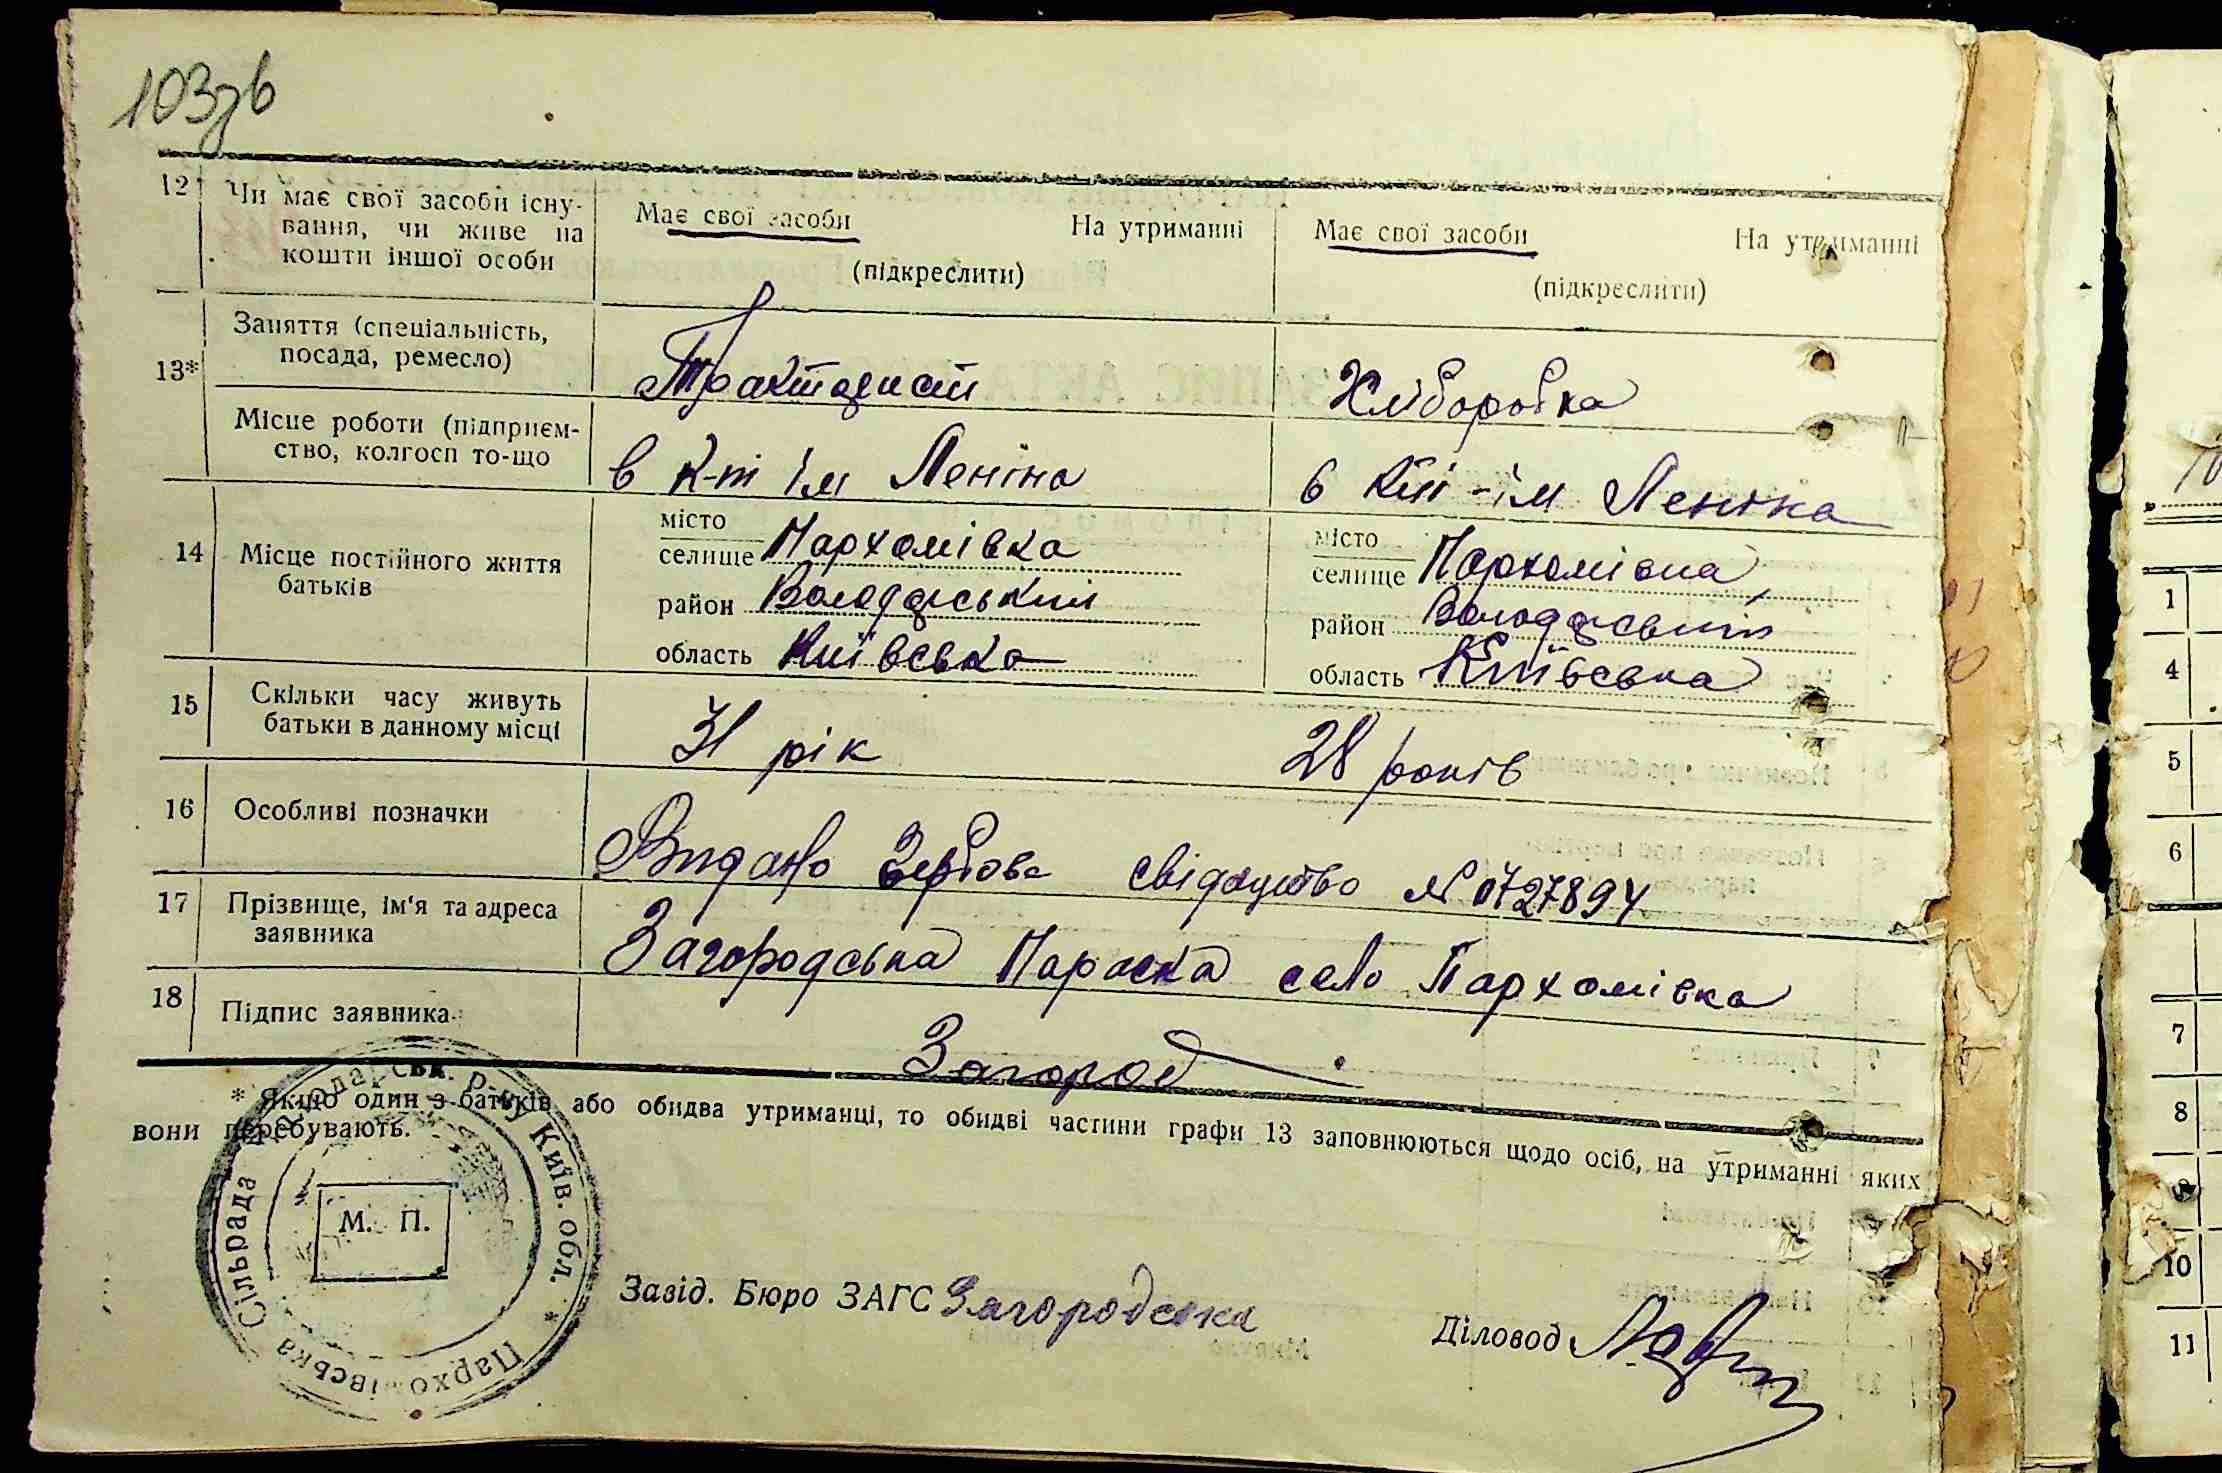 103зв
12 Чи має свої засоби існу-
вання, чи живе на
кошти іншої особи
Має свої засоби На утриманні
(підкреслити)
Має свої засоби На утриманні
(підкреслити)
13*
Заняття (спеціальність,
посада, ремесло)
Тракторист
Хліборобка
Місце роботи (підприєм-
ство, колгосп то-що
в к-пі ім Леніна
в кпі-ім Леніна
14 Місце постійного життя
батьків
місто
селище Пархомівка
район Володарський
область Київська
місто
селище Пархомівка
район Володарський
область Київська
15 Скільки часу живуть
батьки в данному місці
31 рік
28 років
16 Особливі позначки
Видано свідоцтво № 0727894
17 Прізвище, ім'я та адреса
заявника
Загородська Параска село Пархомівка
18 Підпис заявника
Загород
* Якщо один з батьків або обидва утриманці, то обидві частини графи 13 заповнюються щодо осіб, на утриманні яких
вони перебувають.
М. П.
Пархомівська Сільрада Володарськ. р-ну Київ. обл. *
Завід. Бюро ЗАГС Загородська
Діловод
1
4
5
6
7
8
9
10
11